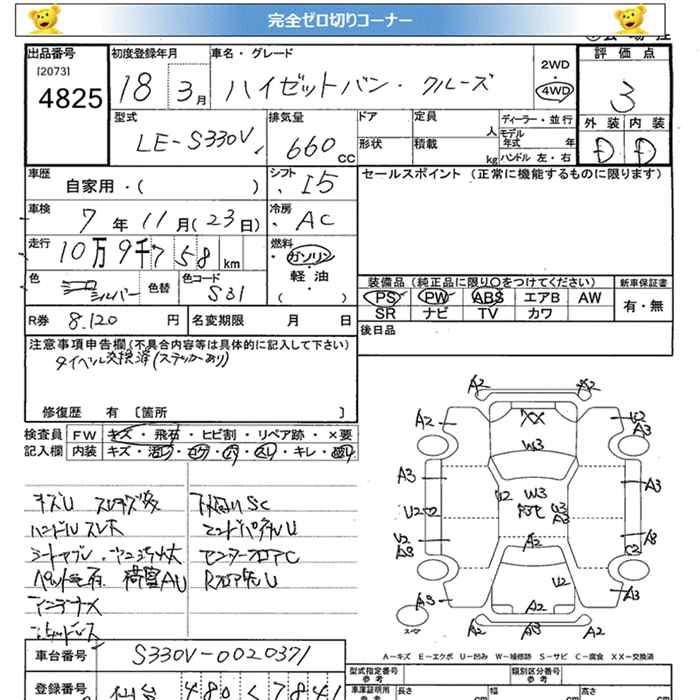 完全ゼロ切りコーナー
出品番号
[2073]
4825
初度登録年月
18 3月
車名・グレード
ハイゼットバン・クルーズ
2WD
4WD
評価点
3
外装 内装
D D
型式
LE-S330V
排気量
660 CC
ドア
形状
定員 人
積載 kg
ディーラー・並行
モデル年式 年
ハンドル 左・右
車歴
自家用・( )
シフト
I5
セールスポイント(正常に機能するものに限ります)
車検
7年11月(23日)
冷房
AC
走行
10万9千758km
燃料
ガソリン
軽油
( )
色
シルバー
色替
色コード
S31
装備品(純正品に限り○をつけてください)
新車保証書
PS PW ABS エアB AW
有・無
SR ナビ TV カワ
R券 8,120 円
名変期限 月 日
後日品
注意事項申告欄(不具合内容等は具体的に記入して下さい)
タイベル交換済(ステッカーあり)
修復歴 有 〔箇所 〕
検査員記入欄
FW キズ・飛石・ヒビ割・リペア跡・×要
内装 キズ・
スレ・キレ・
キズU スレキズ多
下廻りSC
ハンドルスレ大
エンドパネルU
センターフロアC
荷室AU
A2 A2
A2 U2 A3
W3
A3 A3
U2 W3
U2 A3
A2
U2
A3 A3
A2
A2 A3 A2
スペア
A-キズ E-エクボ U-凹み W-補修跡 S-サビ C-腐食 XX-交換済
車台番号 S330V-0020371
登録番号 仙台 480 く 7841
型式指定番号 参考
類別区分番号 参考
車庫証明用 参考
長さ cm 幅 cm 高さ cm